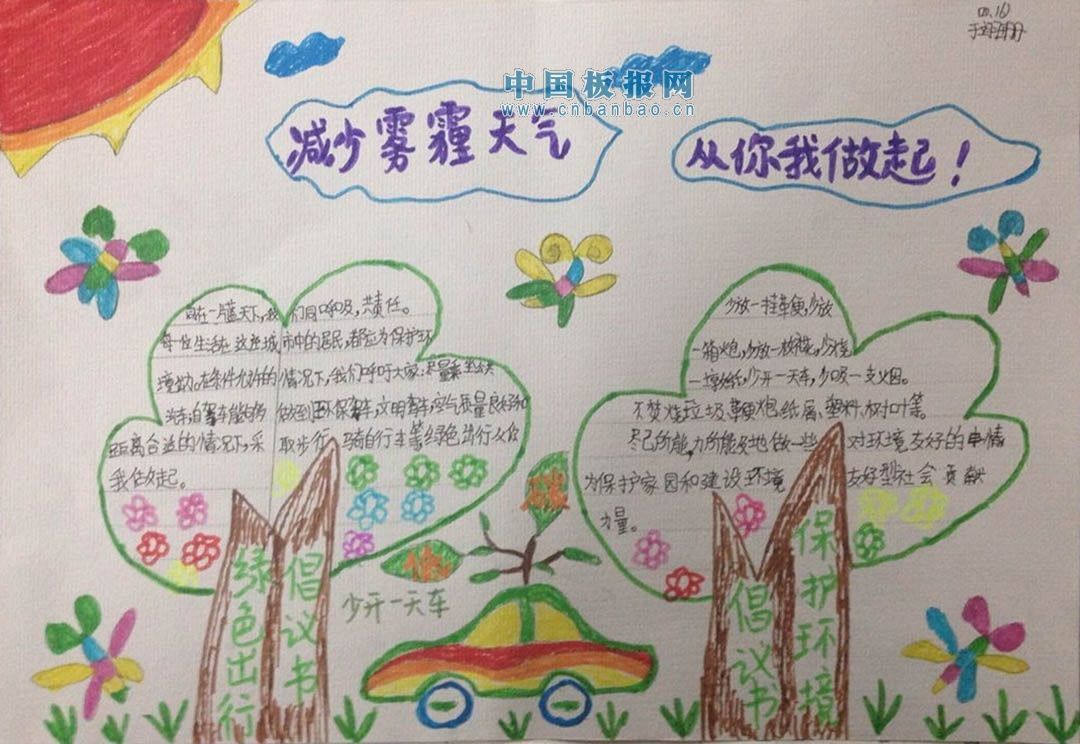 中国板报网
www.cnbanbao.cn
减少雾霾天气
从你我做起！
在一片蓝天下，我们同呼吸，共责任。
每一位生活在这座城市中的居民，都应为保护环
境
在条件允许的情况下，我们呼吁大家：尽量乘坐公共
汽车
做到环保驾车，文明驾车，空气质量良好和
距离合适的情况下，采取步行、骑自行车等绿色出行，从你
我做起。
少放一挂鞭，少放
一箱炮，少放一枚花，少烧
一纸，少开一天车，少吸一支烟。
不焚烧垃圾、鞭炮纸屑、塑料、树叶等。
尽己所能，力所能及地做一些对环境友好的事情
为保护家园和建设环境友好型社会贡献
力量。
绿色出行
倡议书
低
碳
少开一天车
倡议书
保护环境